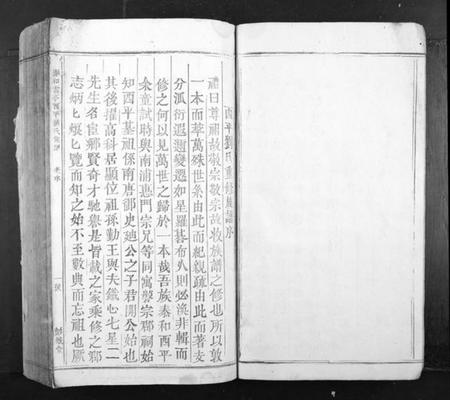 西平劉氏重修族譜序
祖曰尊祖故敬宗敬宗故收族譜之修也所以敦
一本而萃萬殊世系由此而紀親疎由此而著支
分派衍遐邇變遷如星羅碁布人則必渙非輯而
修之何以見萬世之歸於一本哉吾族泰和西平
余童試時與南浦惠門宗兄等同寓學宗郡祠始
知西平基祖係南唐都史廸公之子君開公始也
其後擢高科居顯位祖孫勤王與夫鐵心七星二
先生名宦鄉賢奇才馳譽是皆載之家乘修之郡
志炳也煥也覽而知之始不至數典而忘祖也厥